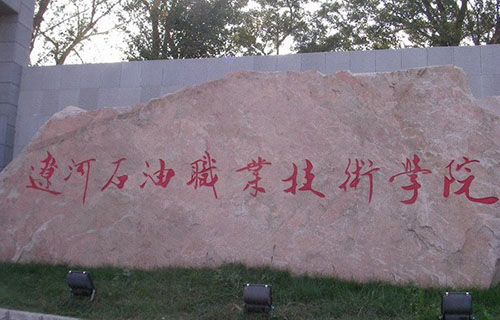 遼河石油職業技術學院